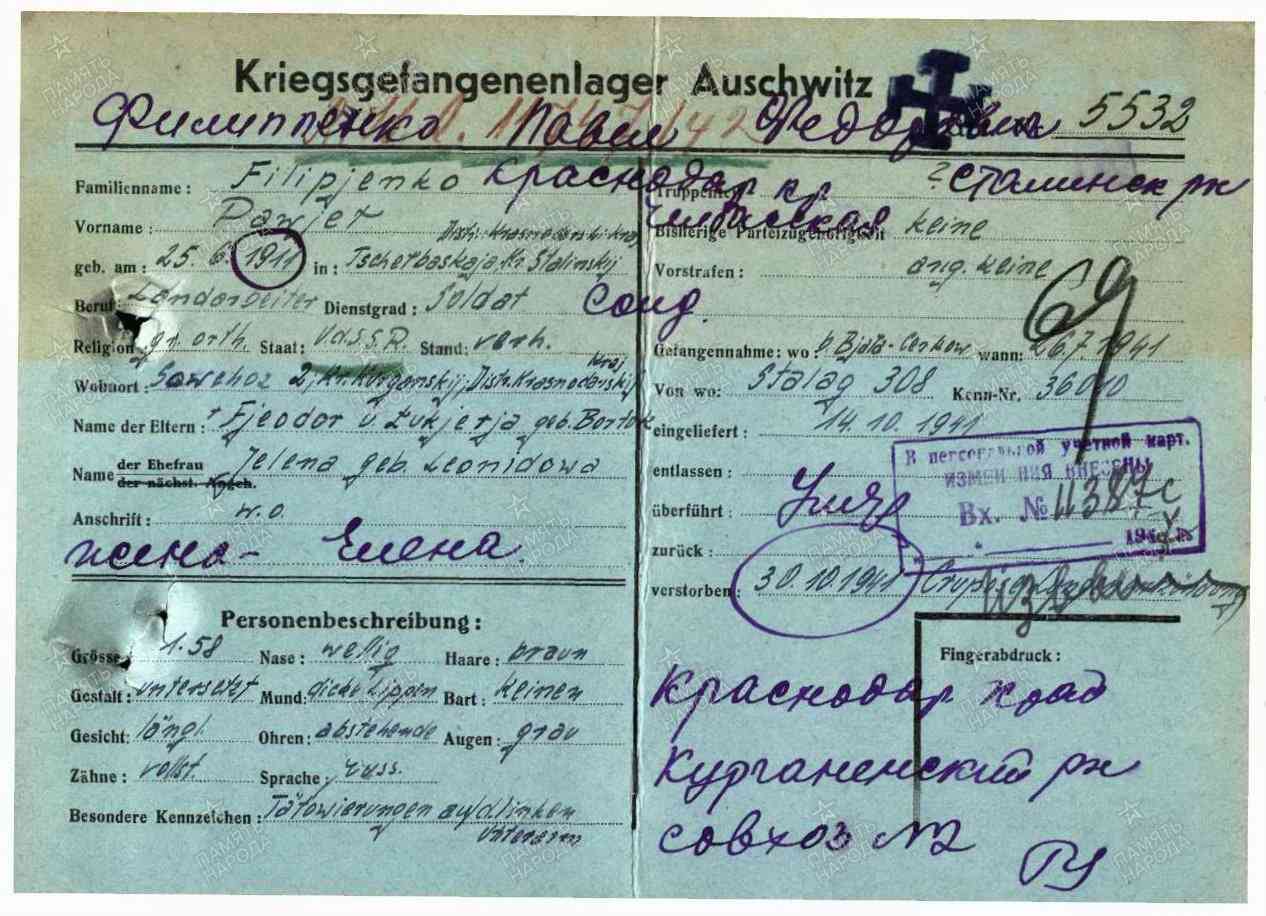 Kriegsgefangenenlager Auschwitz
Филиппенко Павел Федорович 5532
Familienname: Filipjenko Краснодар кр
Truppenteil ? Сталинск рн
Vorname: Pawjeł
Distr. Krasnodarskij Kraj
Челбасская
Bisherige Parteizugehörigkeit keine
geb. am: 25. 6. 1911 in: Tscherbaskaja, Kr. Stalinskij
Vorstrafen: ang. keine
Beruf: Landarbeiter Dienstgrad: Soldat
Солд.
69
Religion gr. orth. Staat: U.d.S.S.R. Stand: verh.
Gefangennahme: wo: b. Bjała-Cerkow wann: 26.7.1941
Wohnort: Sowchoz 2, Kr. Kurganskij, Distr. Krasnodarskij Kraj
Von wo: Stalag 308 Kenn-Nr. 36010
Name der Eltern: + Fjeodor u. Łukjerja geb. Bortok
eingeliefert: 14.10.1941
Name der Ehefrau Jelena geb. Leonidowa
der nächst. Angeh.
entlassen:
Anschrift: w.o.
überführt:
В персональной учетной карт.
ИЗМЕНЕНИЯ ВНЕСЕНЫ
Вх. № 11387с
194 г.
жена - Елена
zurück:
verstorben: 30.10.1941
Personenbeschreibung:
Grösse: 1.58 Nase: wellig Haare: braun
Gestalt: untersetzt Mund: dicke Lippen Bart: keinen
Gesicht: längl. Ohren: abstehende Augen: grau
Zähne: vollst. Sprache: russ.
Besondere Kennzeichen: Tätowierungen auf d. linken
Unterarm
Fingerabdruck:
Краснодар край
Курганенский рн
совхоз №2
ПАМЯТЬ НАРОДА